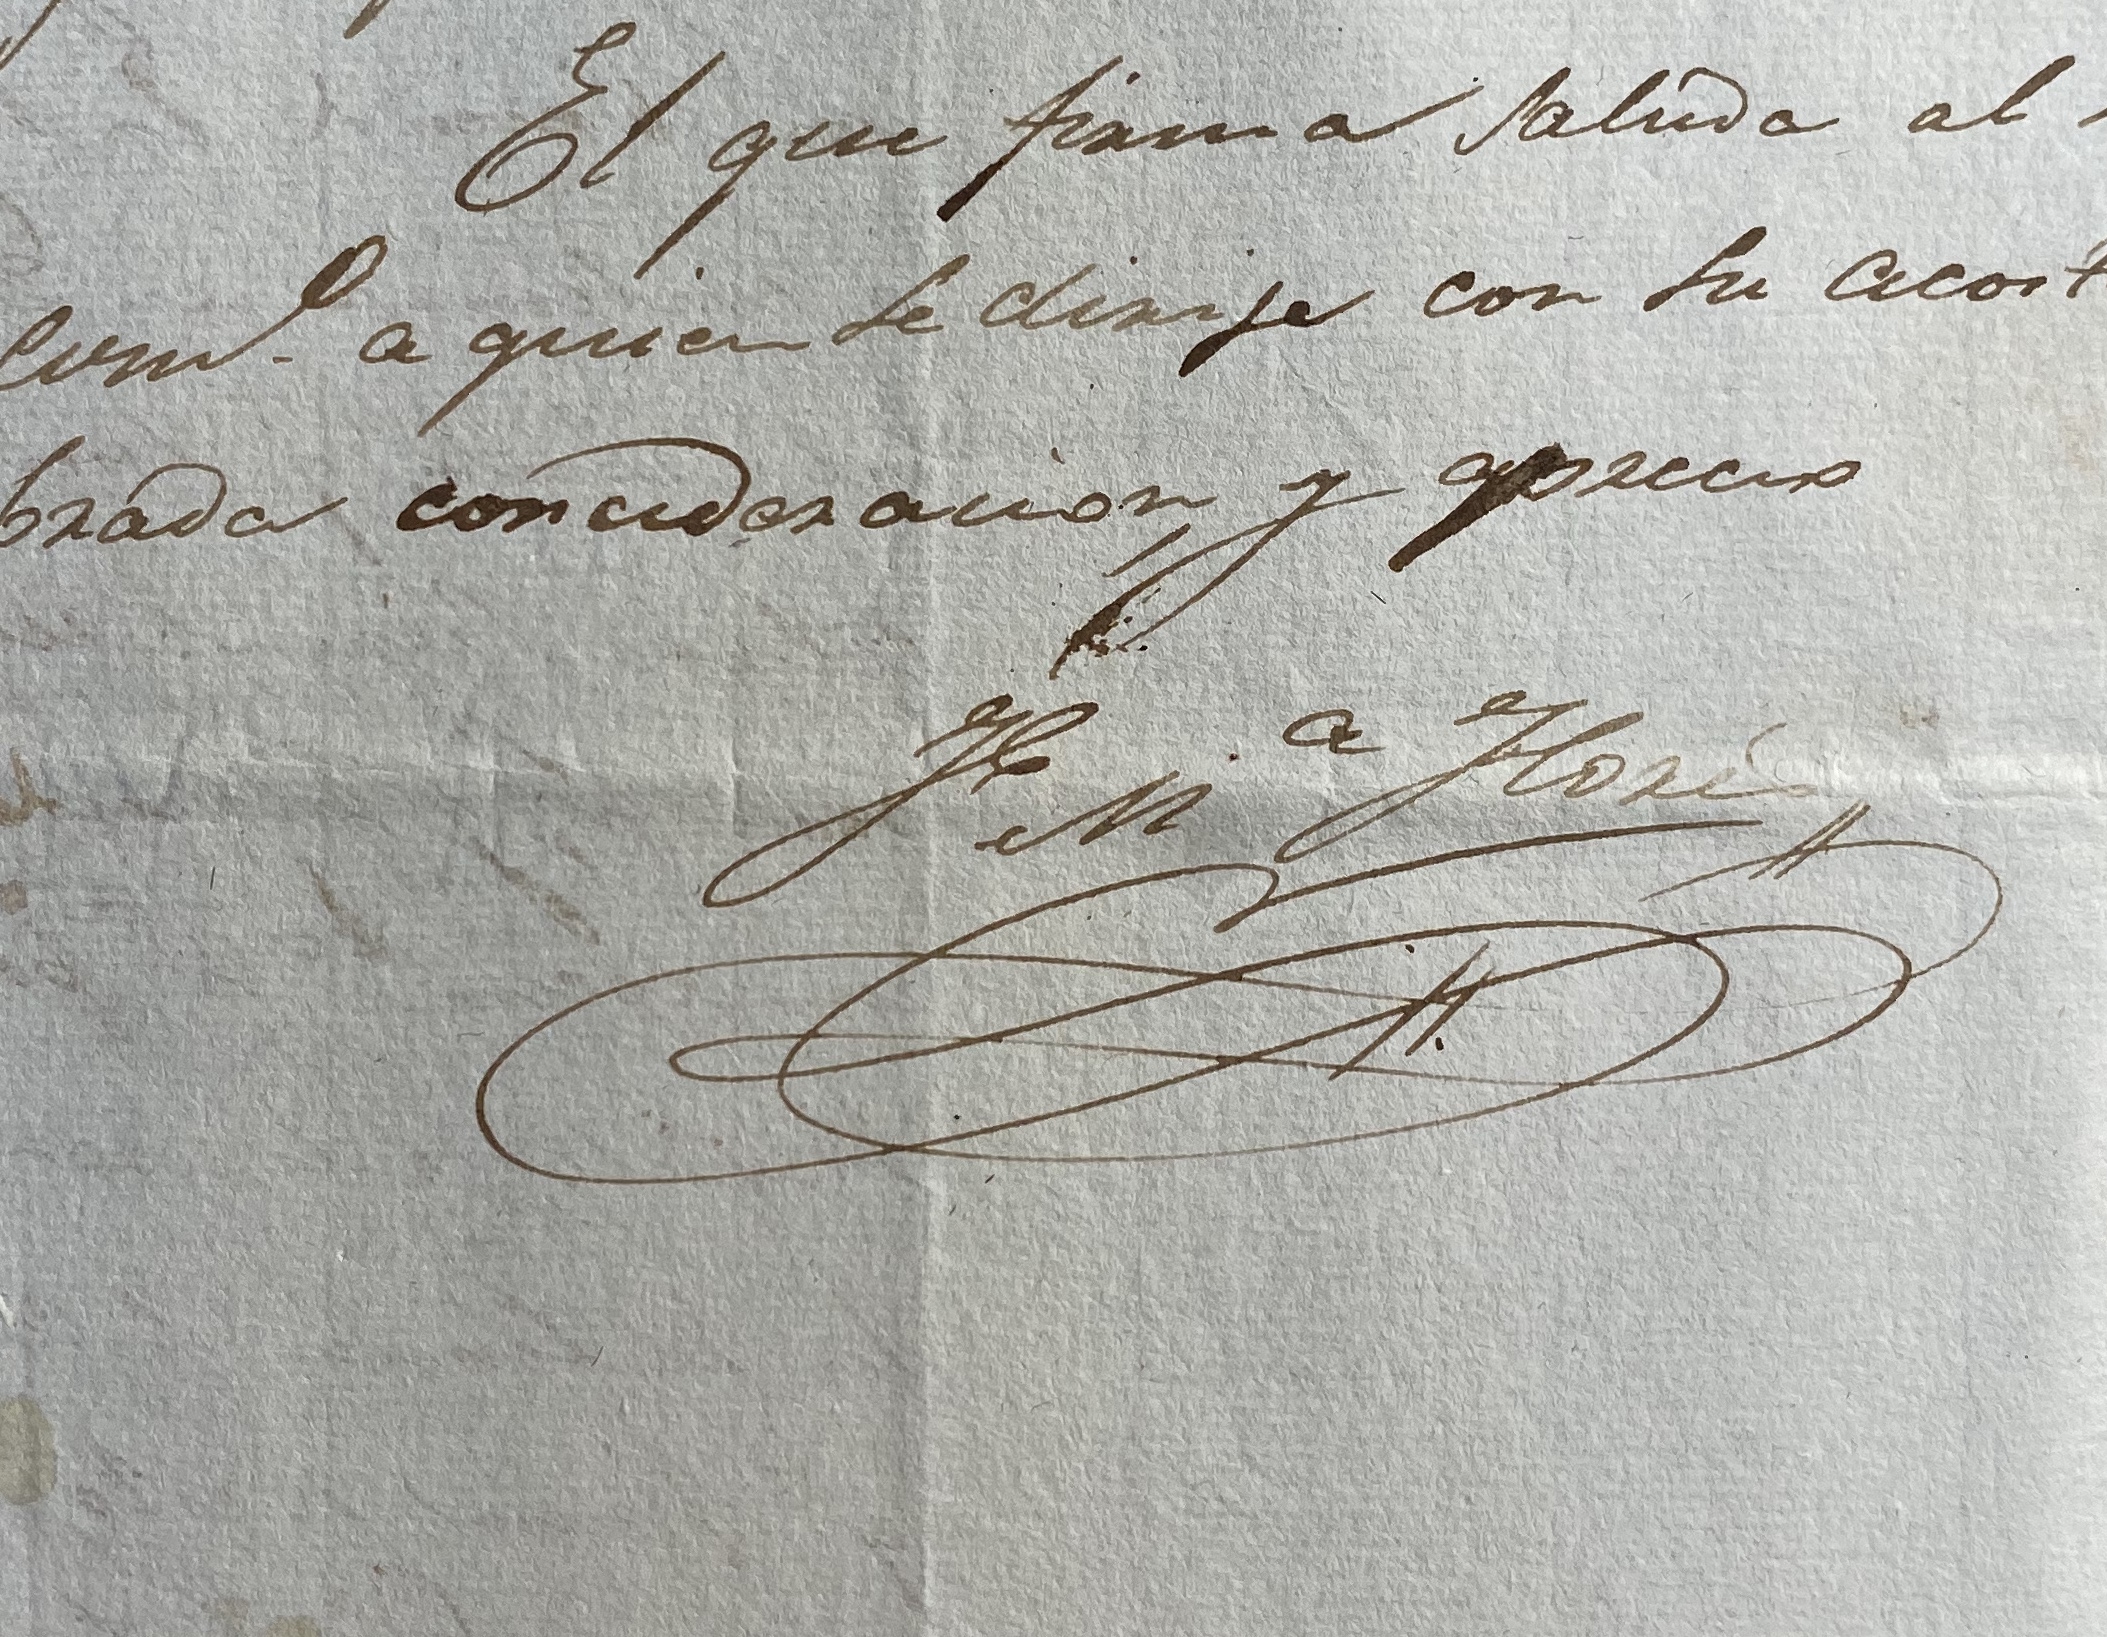 El que firma saluda al
a quien se dirije con su acost
brada concideracion y aprecio
Jé M.ª Florés